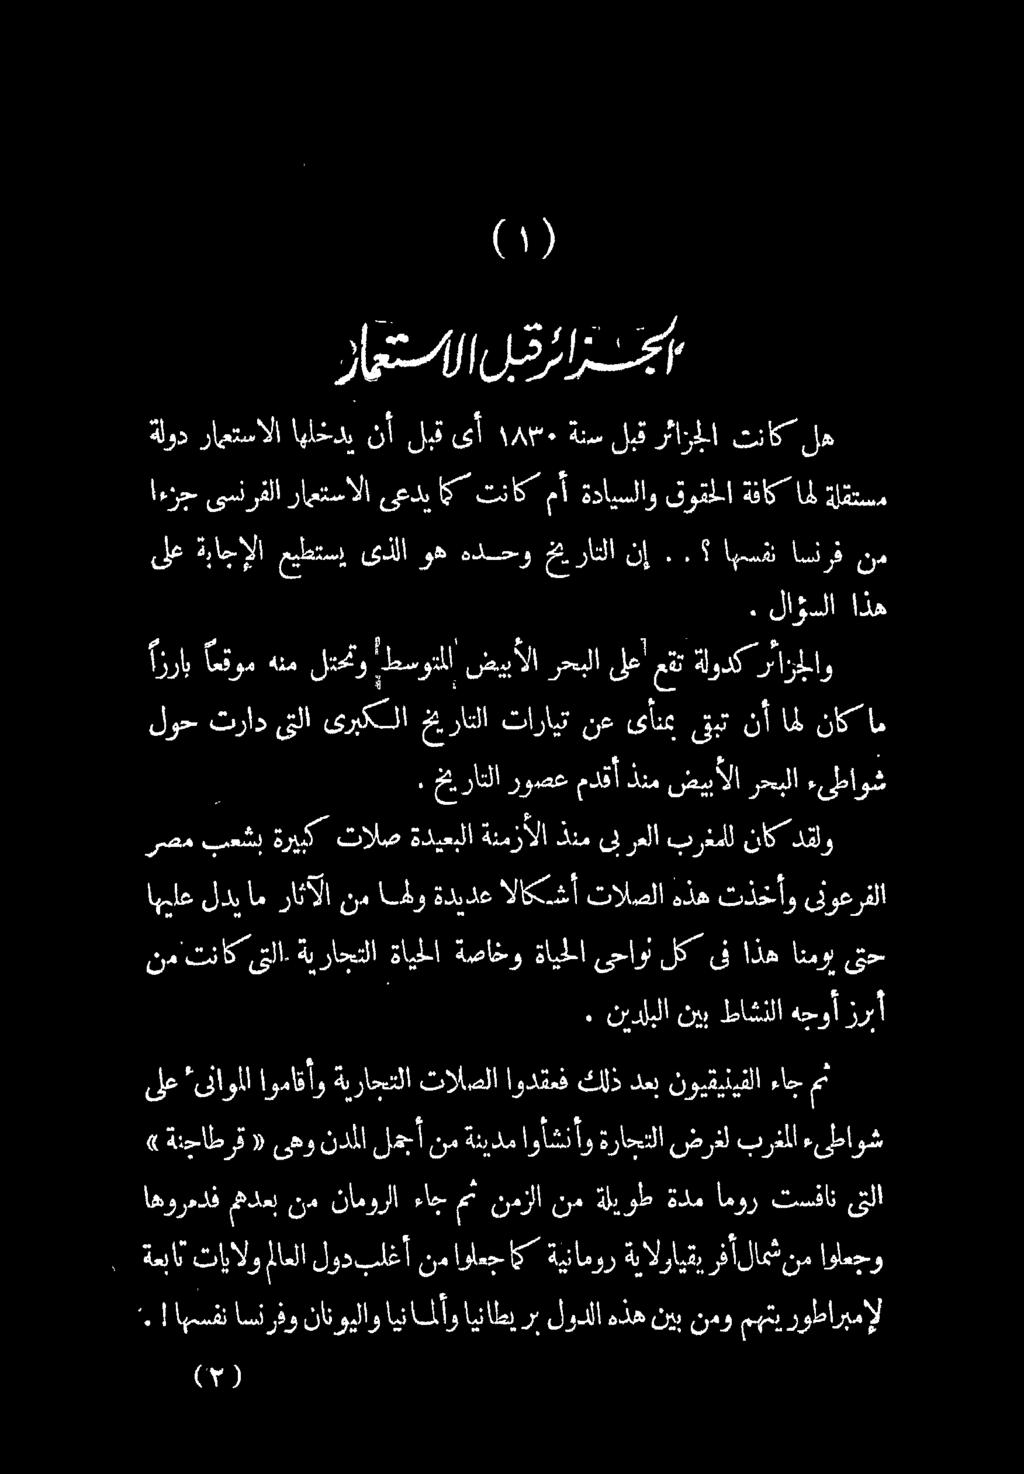 (١)
الجزائر قبل الاستعمار
هل كانت الجزائر قبل سنة ١٨٣٠ أى قبل أن يدخلها الاستعمار دولة
مستقلة لها كافة الحقوق والسيادة أم كانت كما يدعى الاستعمار الفرنسى جزءا
من فرنسا نفسها ؟ . . إن التاريخ وحده هو الذى يستطيع الإجابة على
هذا السؤال .
والجزائر كدولة تقع على البحر الأبيض المتوسط وتحتل منه موقعاً بارزاً
ما كان لها أن تبقى بمنأى عن تيارات التاريخ الكبرى التى دارت حول
شواطىء البحر الأبيض منذ أقدم عصور التاريخ .
ولقد كان للمغرب العربى منذ الأزمنة البعيدة صلات كبيرة بشعب مصر
الفرعونى وأخذت هذه الصلات أشكالا عديدة ولها من الآثار ما يدل عليها
حتى يومنا هذا فى كل نواحى الحياة وخاصة الحياة التجارية التى كانت من
أبرز أوجه النشاط بين البلدين .
ثم جاء الفينيقيون بعد ذلك فعقدوا الصلات التجارية وأقاموا الموانىء على
شواطىء المغرب لغرض التجارة وأنشأوا مدينة من أجمل المدن وهى « قرطاجنة »
التى نافست روما مدة طويلة من الزمن ثم جاء الرومان من بعدهم فدمروها
وجعلوا من شمال أفريقيا ولاية رومانية كما جعلوا من أغلب دول العالم ولايات تابعة
لإمبراطوريتهم ومن بين هذه الدول بريطانيا وألمانيا واليونان وفرنسا نفسها ! .
(٢)